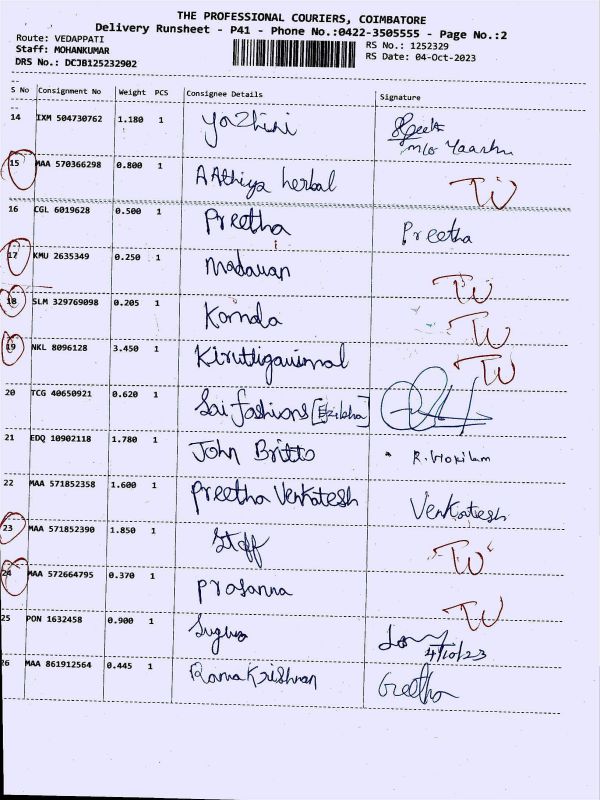 THE PROFESSIONAL COURIERS, COIMBATORE
Delivery Runsheet - P41 - Phone No.:0422-3505555 - Page No.:2
Route: VEDAPPATI
RS No.: 1252329
Staff: MOHANKUMAR
RS Date: 04-Oct-2023
DRS No.: DCJB125232902
S No Consignment No Weight PCS Consignee Details Signature
14 IXM 504730762 1.180 1 Yazhini Geeta
m/o Yaazhu
15 MAA 570366298 0.800 1 AAthiya herbal TW
16 CGL 6019628 0.500 1 Preetha Preetha
17 KMU 2635349 0.250 1 Madavan TW
18 SLM 329769098 0.205 1 Kamala TW
19 NKL 8096128 3.450 1 Kiruttigaummal TW
20 TCG 40650921 0.620 1 Sai fashions [Ezilsha]
21 EDQ 10902118 1.780 1 John Britto R.
22 MAA 571852358 1.600 1 Preetha Venkatesh Venkatesh
23 MAA 571852390 1.850 1 Staff TW
24 MAA 572664795 0.370 1 Prasanna TW
25 PON 1632458 0.900 1 Suguna
4/10/23
26 MAA 861912564 0.445 1 Rama Krishnan Geetha